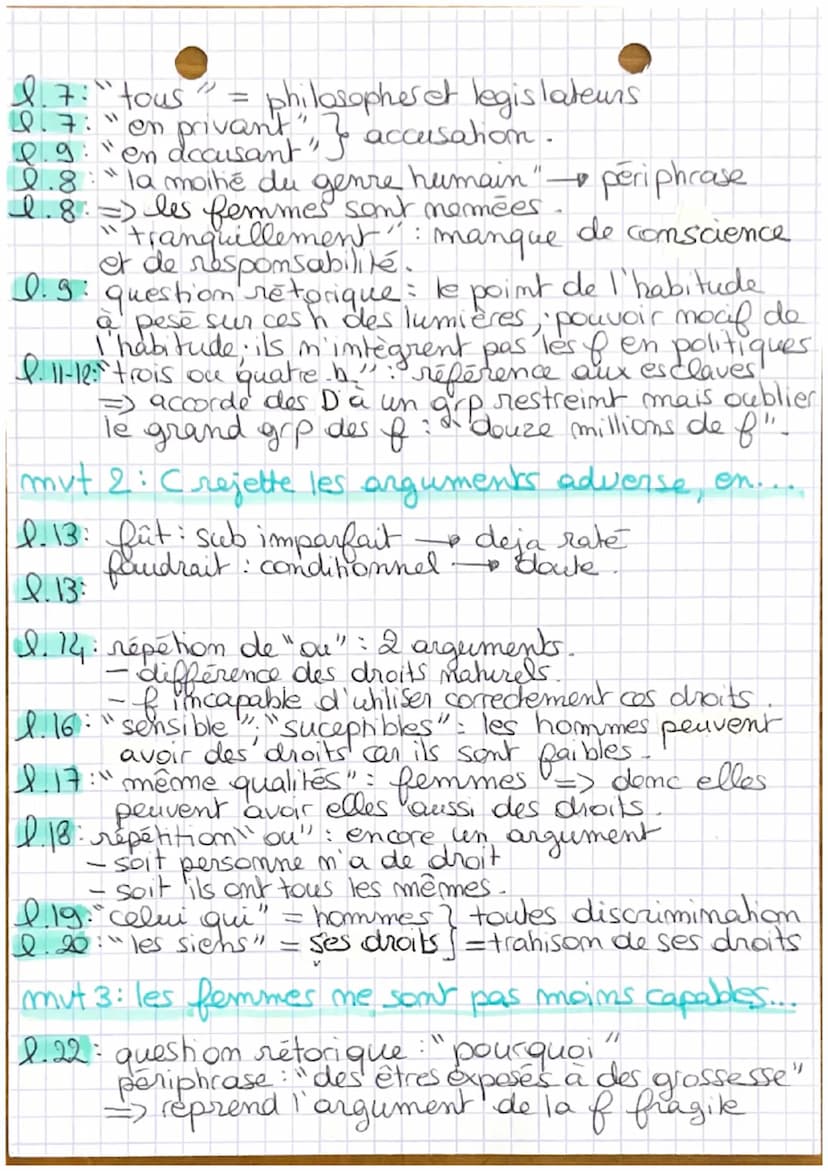 l.7: "tous" = philosophes et legislateurs
l.7: "en privant" } accusation.
l.9: "en accusant"
l.8: "la moitié du genre humain" → périphrase
l.8: => les femmes sont nomées.
"tranquillement": manque de conscience
et de responsabilité.
l.9: question rétorique: le point de l'habitude
à pesé sur ces h des lumières, pouvoir nocif de
l'habitude: ils n'intègrent pas les f en politiques
l.11-12: "trois ou quatre h": référence aux esclaves
=> accorde des D à un grp restreint mais oublier
le grand grp des f: "douze millions de f".
mvt 2: C rejette les arguments adverse, en...
l.13: fût: sub imparfait → deja raté
faudrait: conditionnel → doute.
l.13:
l.14: répétion de "ou": 2 arguments.
- différence des droits naturels.
- f incapable d'utiliser correctement ces droits.
l.16: "sensible", "suceptibles": les hommes peuvent
avoir des droits car ils sont faibles.
l.17: "même qualités": femmes => donc elles
peuvent avoir elles aussi des droits.
l.18: répétition "ou": encore un argument
- soit personne n'a de droit
- soit ils ont tous les mêmes.
l.19: "celui qui" = hommes } toutes discrimination
l.20: "les siens" = ses droits } = trahison de ses droits
mvt 3: les femmes ne sont pas moins capables...
l.22: question rétorique: "pourquoi"
périphrase: "des êtres exposés à des grossesse"
=> reprend l'argument de la f fragile